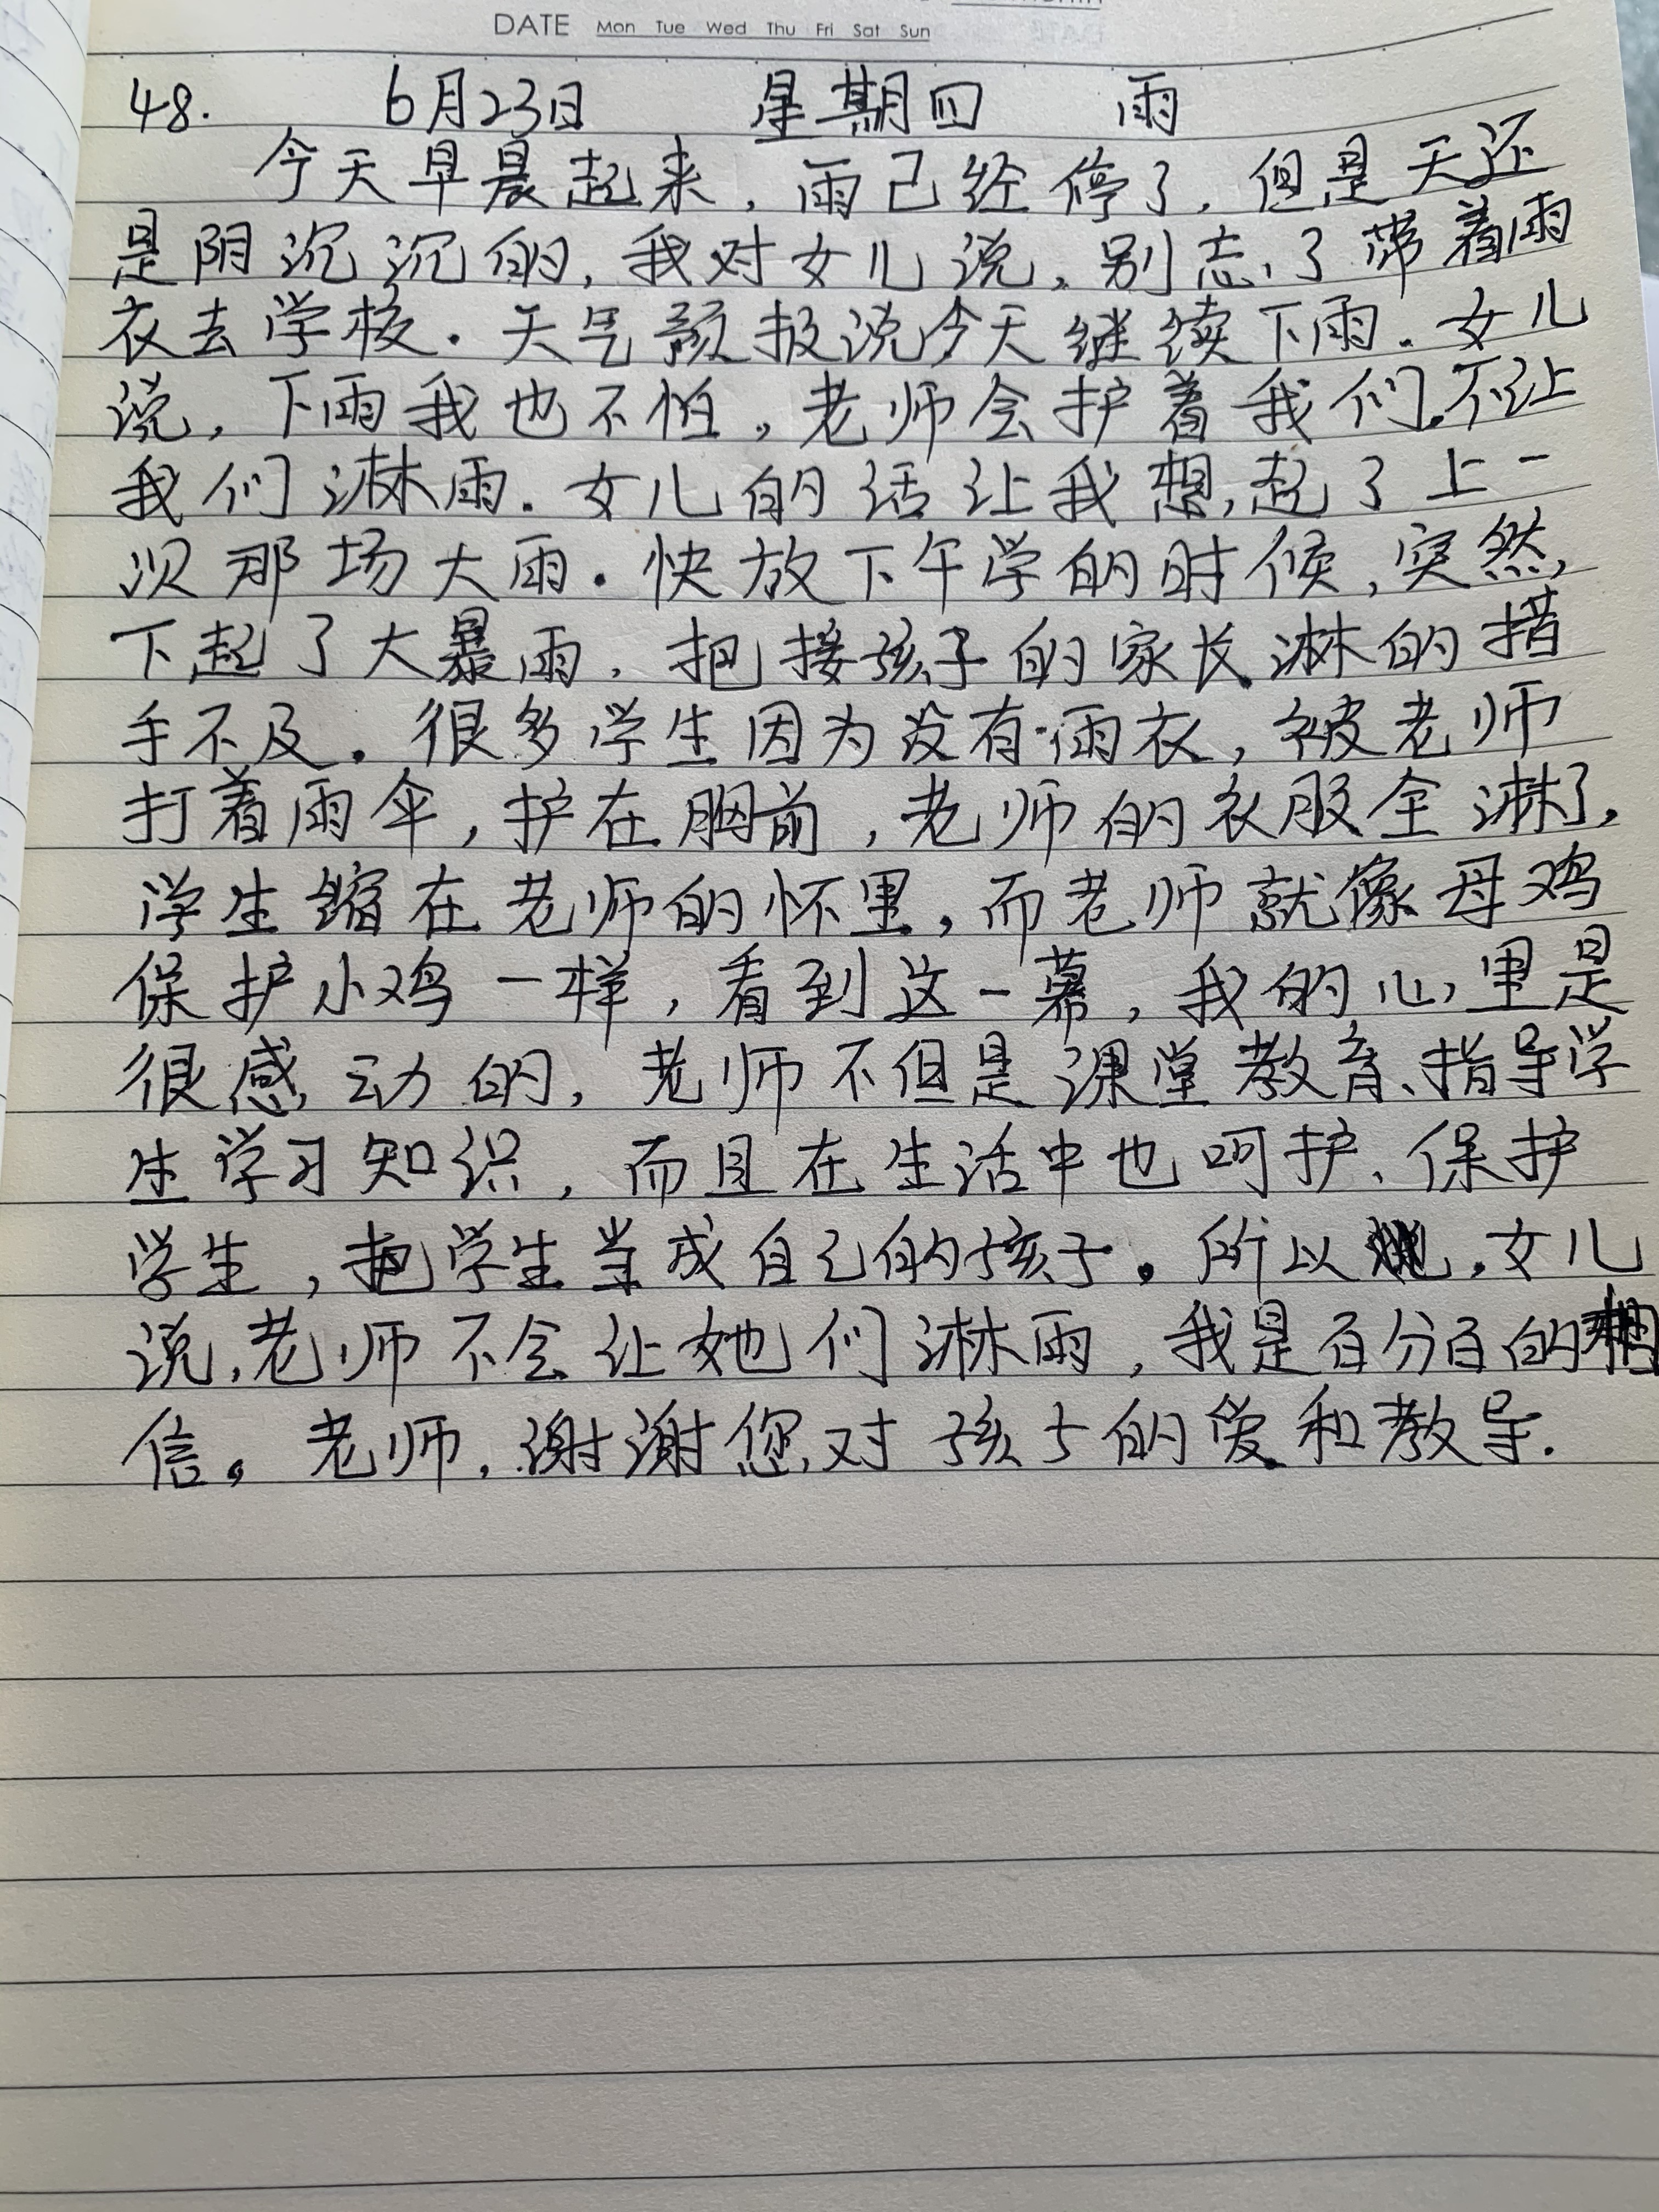 DATE Mon Tue Wed Thu Fri Sat Sun
48. 6月23日 星期四 雨
今天早晨起来，雨己经停了，但是天还
是阴沉沉的，我对女儿说，别忘了带着雨
衣去学校．天气预报说今天继续下雨．女儿
说，下雨我也不怕，老师会护着我们，不让
我们淋雨．女儿的话让我想起了上一
次那场大雨．快放下午学的时候，突然，
下起了大暴雨，把接孩子的家长淋的措
手不及。很多学生因为没有雨衣，被老师
打着雨伞，护在胸前，老师的衣服全淋了，
学生缩在老师的怀里，而老师就像母鸡
保护小鸡一样，看到这一幕，我的心里是
很感动的，老师不但是课堂教育、指导学
生学习知识，而且在生活中也呵护、保护
学生，把学生当成自己的孩子。所以，女儿
说，老师不会让她们淋雨，我是百分百的相
信。老师，谢谢您对孩子的爱和教导．